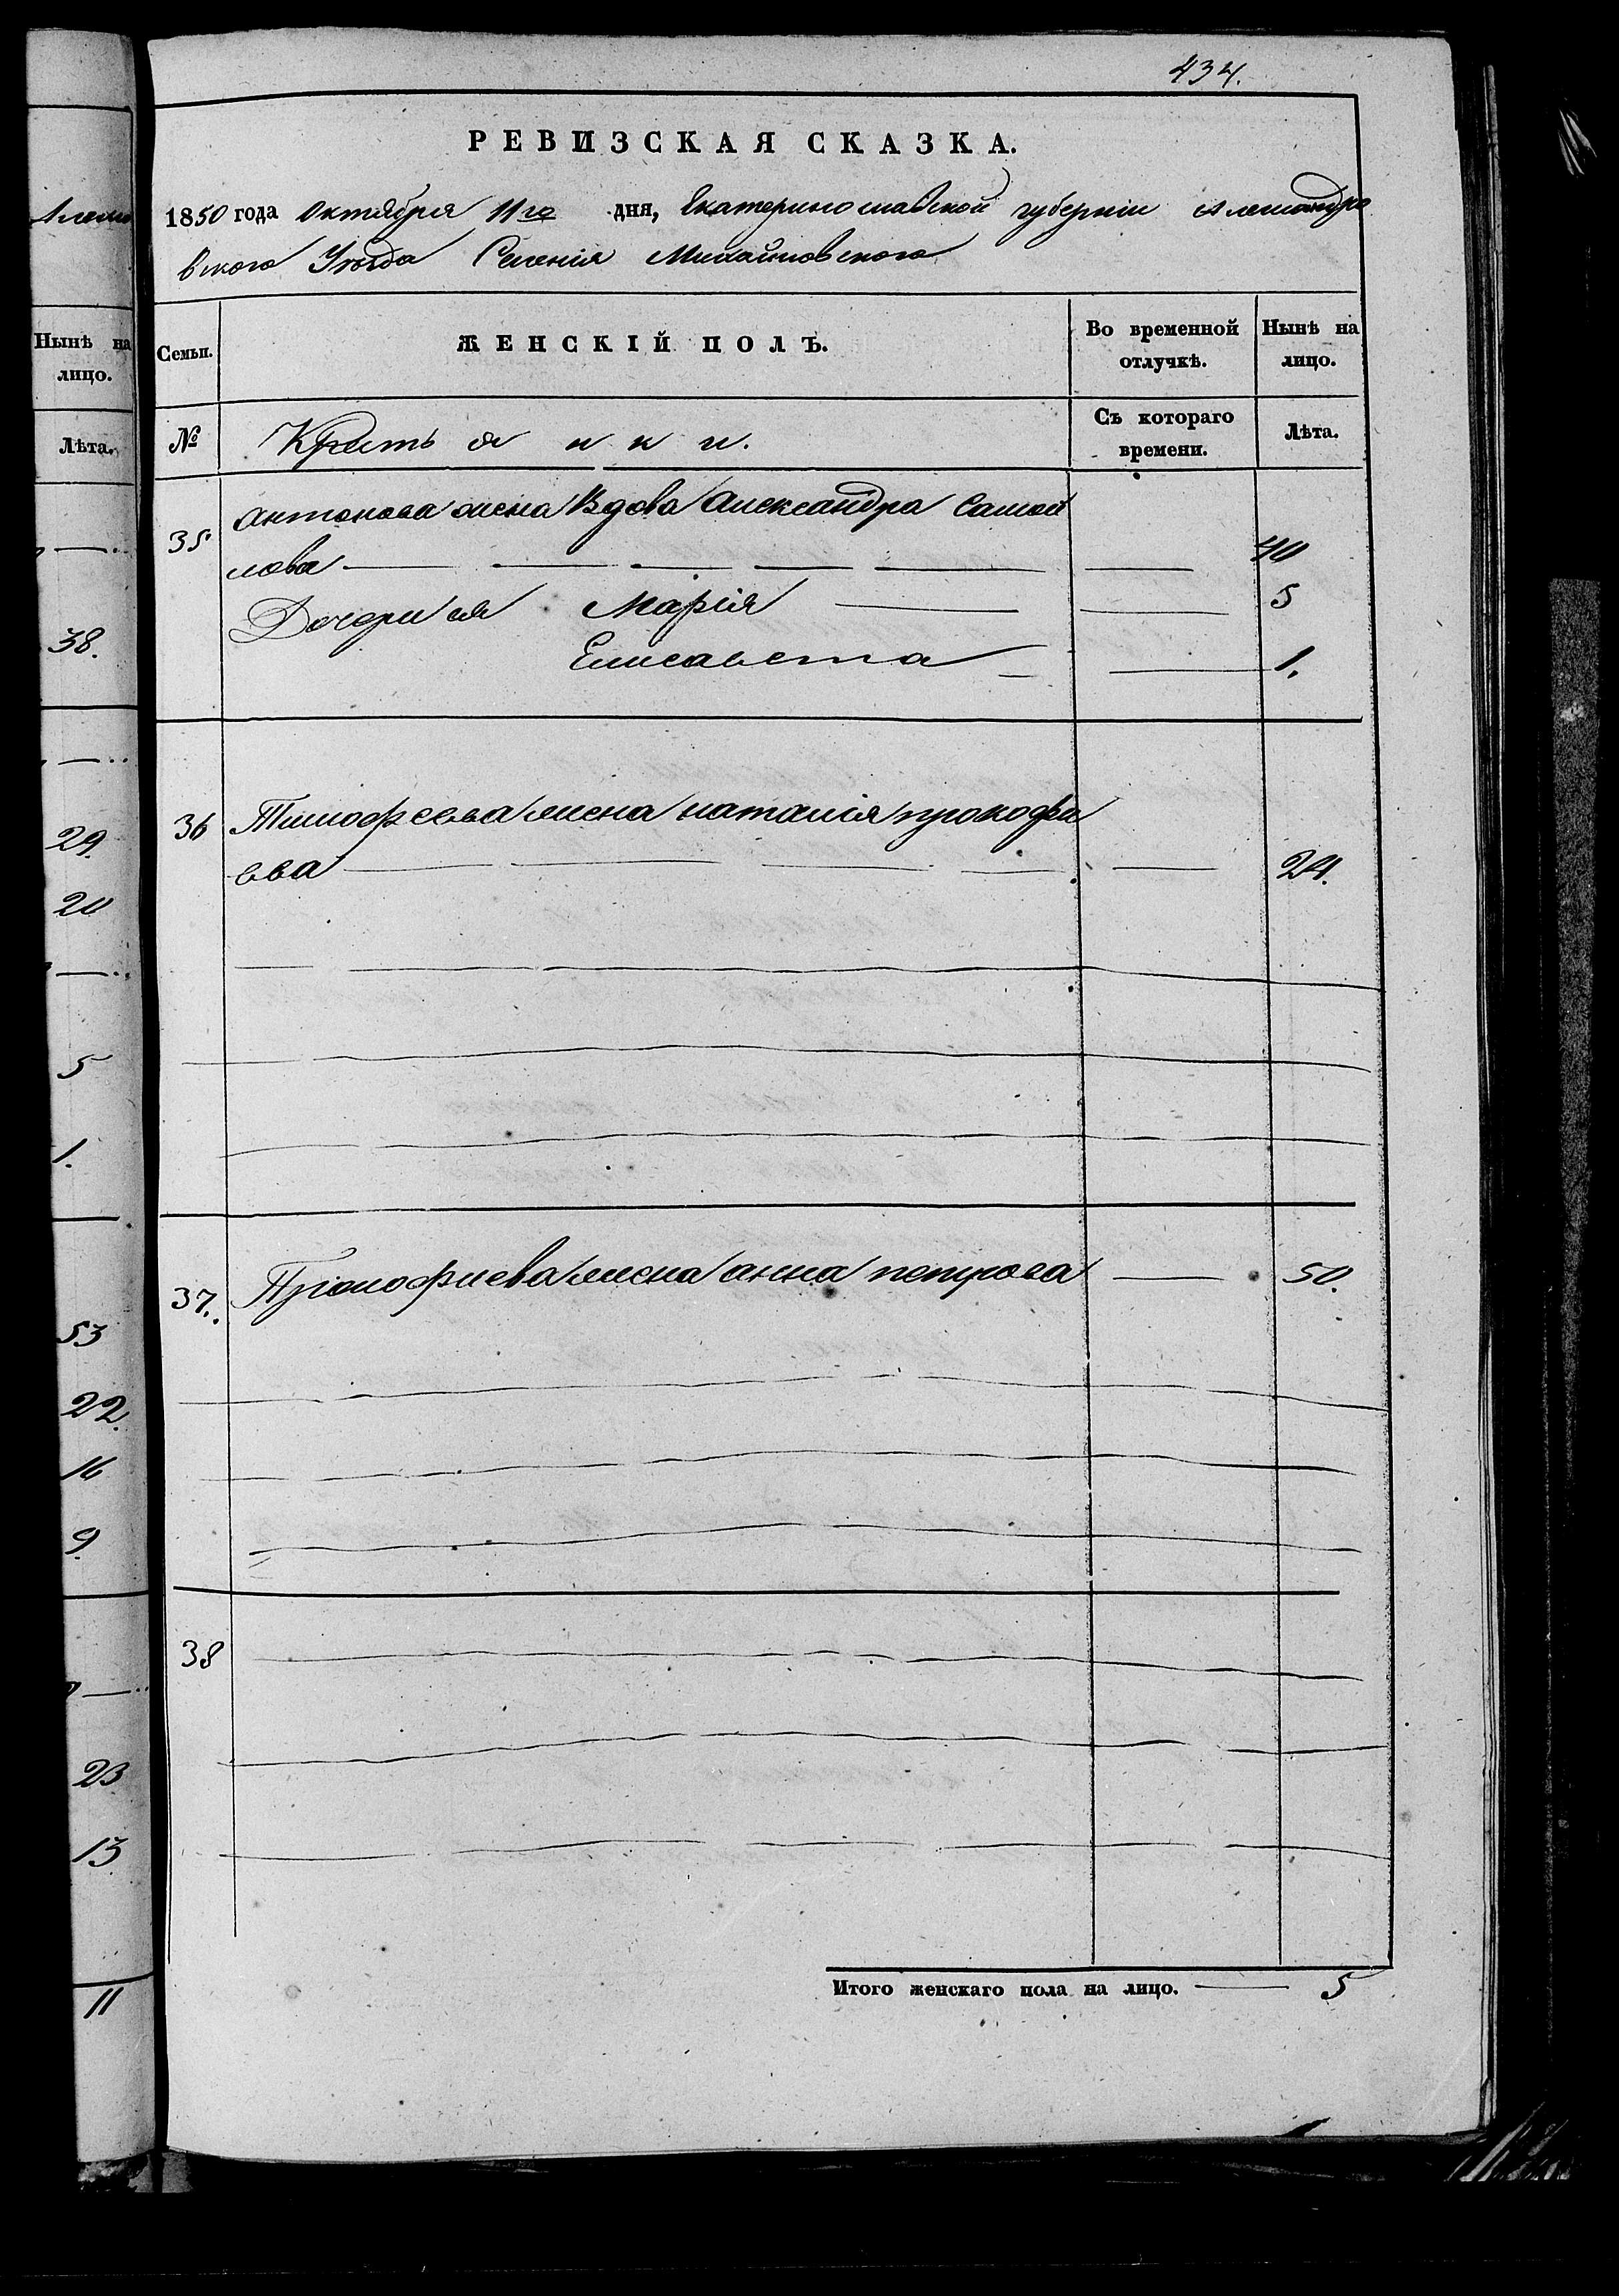 434.
РЕВИЗСКАЯ СКАЗКА.
1850 года Октября 11го дня, Екатеринославской губерніи Александро
вского Уѣзда Селенія Михайловского
Нынѣ на лицо.
Лѣта.
Семьи.
ЖЕНСКІЙ ПОЛЪ.
Во временной отлучкѣ.
Нынѣ на лицо.
№
Крестьянки.
Съ котораго времени.
Лѣта.
35. Антонова жена Вдова Александра Самой
лова 40
Дочери ея Марія 5
Елисавета 1.
36 Тимофеева жена наталія прокофи
ева 24.
37. Прокофиева жена анна петрова 50.
38
Итого женскаго пола на лицо. 5
38.
29.
20
5
1.
53
22.
16
9.
23
13
11